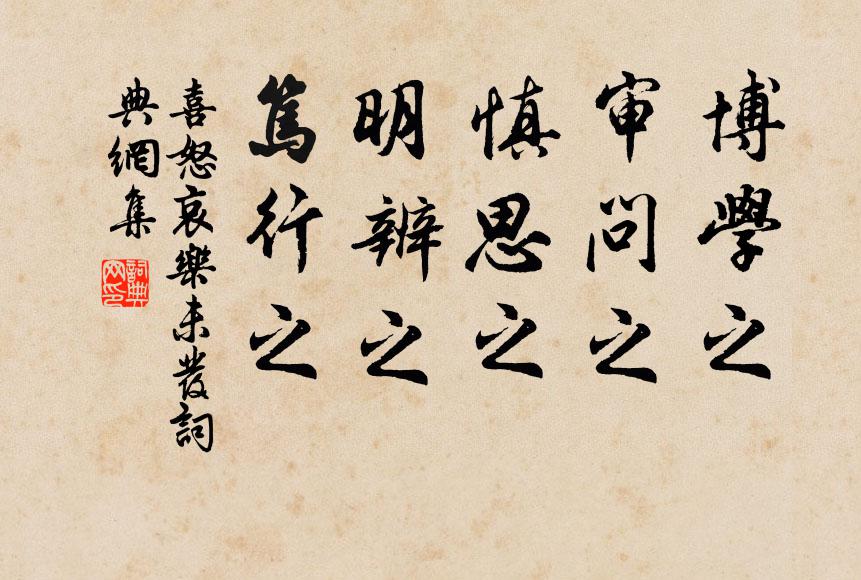 博學之
审問之
慎思之
明辨之
篤行之
喜怒哀樂未發詞
典網集
詞典
网印